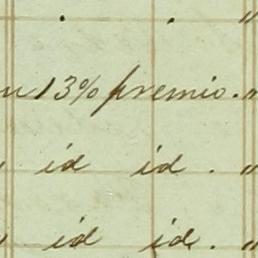 . . "
n 13% premio. "
id id. "
id id. "